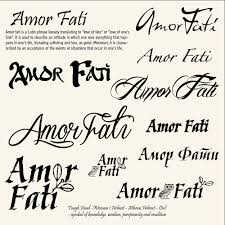 Amor Fati
Amor fati is a Latin phrase loosely translating to "love of fate" or "love of one's
fate". It is used to describe an attitude in which one sees everything that happens
in one's life, including suffering and loss, as good. Moreover, it is characterized
by an acceptance of the events or situations that occur in one's life.
Amor Fati
Amor Fati
Amor Fati
Amor Fati
Amor Fati
Amor Fati
Amor Fati
Амор Фати
Amor
Fati
Amor
Fati
Amor Fati
Helmet - Athena Helmet - Owl
- symbol of knowledge, wisdom, perspicacity and erudition